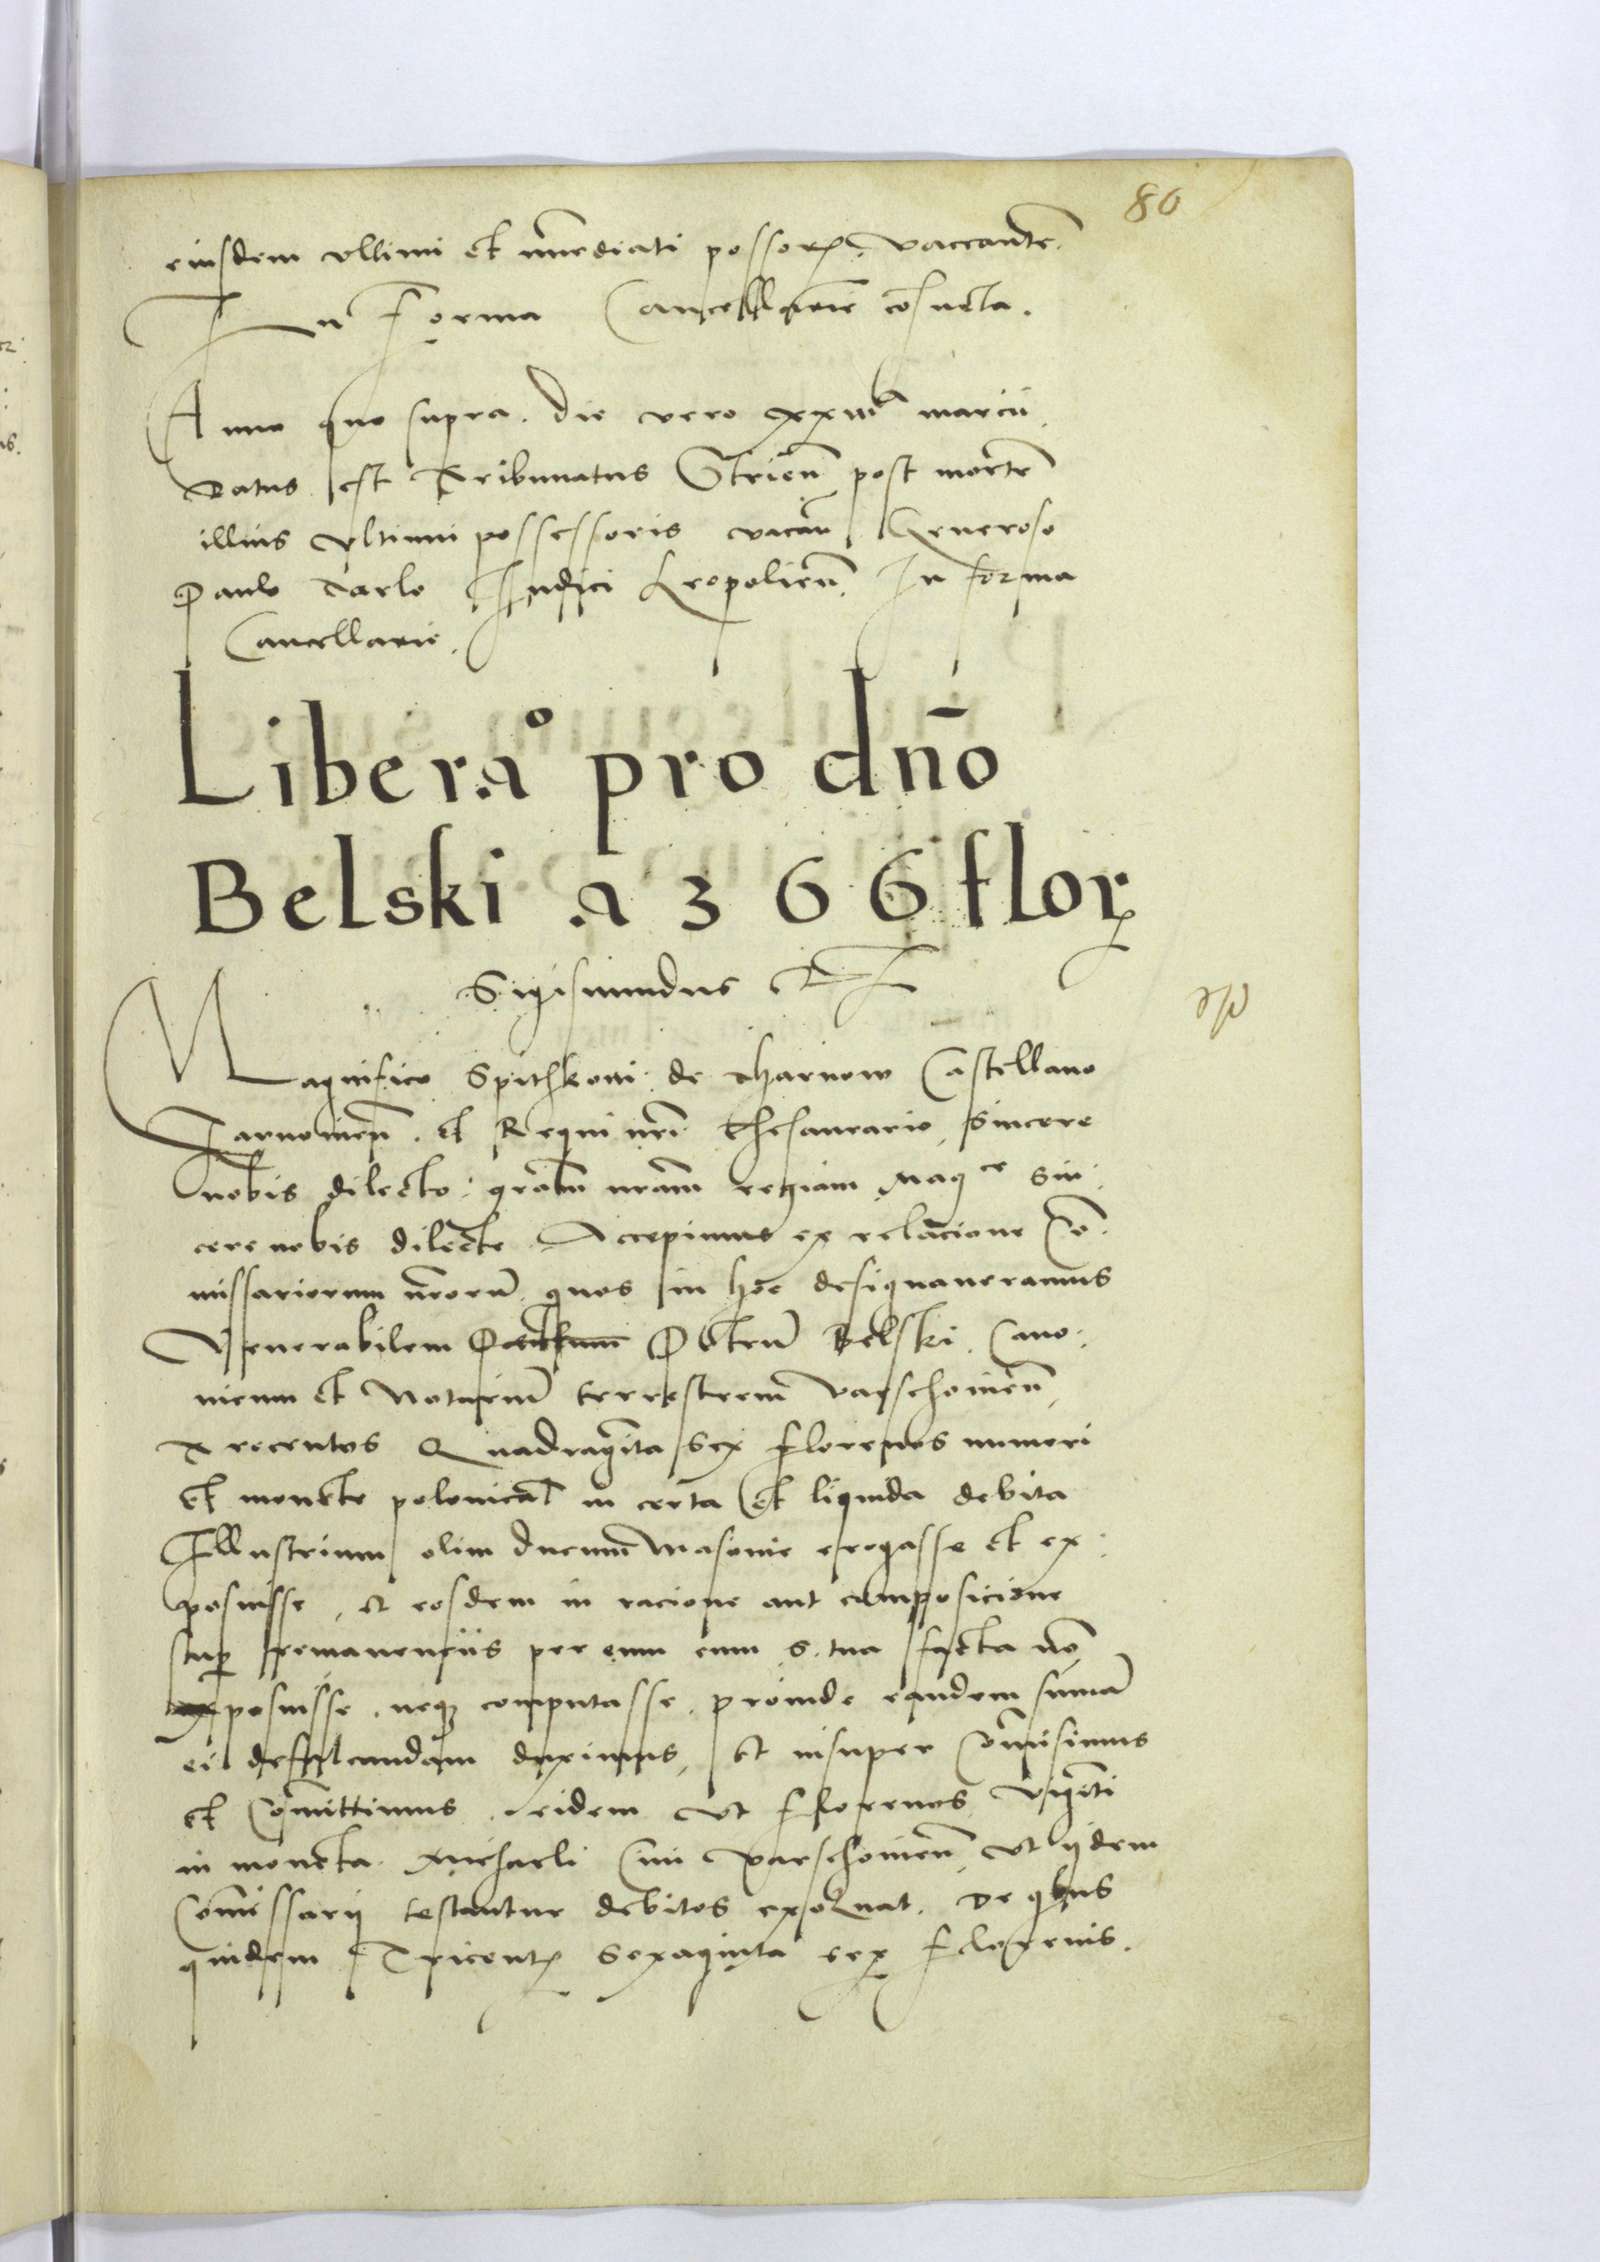 80
eiusdem ultimi et īmediati possoris vaccantē.
In Forma Cancellarie cōsueta.
Anno quo supra. die vero xxiiii^a marcii
datus est Tribunatus Strien̄ post mortē
illius vltimi possessoris vacan̄ Generoso
Paulo Tarlo Iudici Leopolien̄ In forma
Cancellarie.
Libera^o pro dn̄o
Belski a 366 flor
Sigismundus
Magnifico Spithkoni de Tharnow Castellano
Tarnovien̄. et Regni nrī Thesaurario Sincere
nobis dilecto: gratiā nrām regiam Mag^ce sin:
cere nobis dilecte Accepimus ex relacione Co:
missariorum nrōrū quos in hoc designaueramus
Venerabilem Petrū Belski Cano:
nicum et Notariū terrestrem Varschovien̄
Trecentos Quadragīta sex florenos numeri
et monete polonical̄ in certa et liquida debita
Illustrium olim ducum Masovie erogasse et ex:
posuisse, et eosdem in racione aut composicione
sup remanenciis per eum cum S. tua facta nō
posuisse neq computasse. proinde eandem sumā
ei defalcandam duximus, et insuper Cōmisimus
et Cōmittimus eidem ut florenos Vigīti
in moneta Michaeli Civi Varschovien̄ ut iidem
Cōmissarii testantur debitos exolvat. De qbus
quidem Tricentis Sexaginta sex florenis.